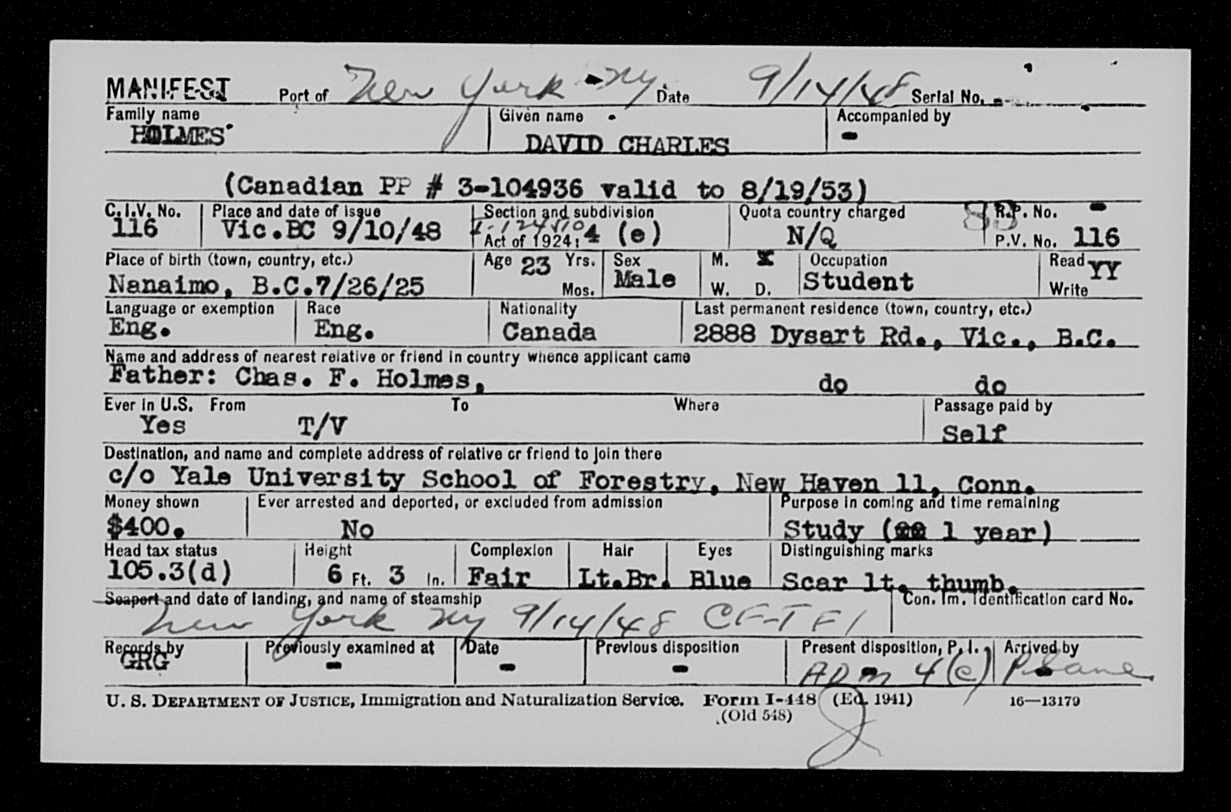 MANIFEST Port of New York NY. Date 9/14/48 Serial No.
Family name Given name Accompanied by
HOLMES DAVID CHARLES -
(Canadian PP # 3-104936 valid to 8/19/53)
C.I.V. No. Place and date of issue Section and subdivision Quota country charged R.P. No. -
116 Vic.BC 9/10/48 Act of 1924: 4 (e) N/Q P.V. No. 116
Place of birth (town, country, etc.) Age 23 Yrs. Sex M. X Occupation Read YY
Nanaimo, B.C.7/26/25 Mos. Male W. D. Student Write
Language or exemption Race Nationality Last permanent residence (town, country, etc.)
Eng. Eng. Canada 2888 Dysart Rd., Vic., B.C.
Name and address of nearest relative or friend in country whence applicant came
Father: Chas. F. Holmes, do do
Ever in U.S. From To Where Passage paid by
Yes T/V Self
Destination, and name and complete address of relative or friend to join there
c/o Yale University School of Forestry, New Haven 11, Conn.
Money shown Ever arrested and deported, or excluded from admission Purpose in coming and time remaining
$400. No Study ( 1 year)
Head tax status Height Complexion Hair Eyes Distinguishing marks
105.3(d) 6 Ft. 3 In. Fair Lt.Br. Blue Scar lt. thumb.
Seaport and date of landing, and name of steamship Con. Im. Identification card No.
New York NY 9/14/48 CF-TFI
Records by Previously examined at Date Previous disposition Present disposition, P.I. Arrived by
GRG - - - ADM 4(e)
U. S. DEPARTMENT OF JUSTICE, Immigration and Naturalization Service. Form I-448 (Ed. 1941) 16—13179
(Old 548)